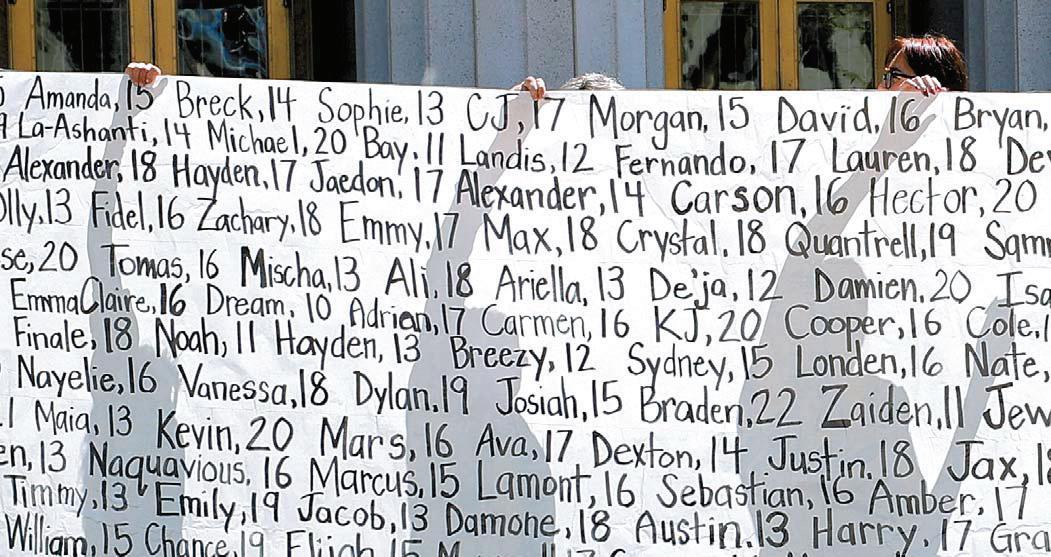 Amanda, 15 Breck, 14 Sophie, 13 CJ, 17 Morgan, 15 David, 16 Bryan,
La-Ashanti, 14 Michael, 20 Bay, 11 Landis, 12 Fernando, 17 Lauren, 18
Alexander, 18 Hayden, 17 Jaedon, 17 Alexander, 14 Carson, 16 Hector, 20
olly, 13 Fidel, 16 Zachary, 18 Emmy, 17 Max, 18 Crystal, 18 Quantrell, 19
se, 20 Tomas, 16 Mischa, 13 Ali, 18 Ariella, 13 De'ja, 12 Damien, 20 Isa
EmmaClaire, 16 Dream, 10 Adrian, 17 Carmen, 16 KJ, 20 Cooper, 16 Cole,
Finale, 18 Noah, 11 Hayden, 13 Breezy, 12 Sydney, 15 Londen, 16 Nate,
Nayelie, 16 Vanessa, 18 Dylan, 19 Josiah, 15 Braden, 22 Zaiden, 11 Jew
Maia, 13 Kevin, 20 Mars, 16 Ava, 17 Dexton, 14 Justin, 18 Jax,
en, 13 Naquavious, 16 Marcus, 15 Lamont, 16 Sebastian, 16 Amber, 17
Timmy, 13 Emily, 19 Jacob, 13 Damone, 18 Austin, 13 Harry, 17 Gra
William, 15 Chance, 19 Elijah, 15